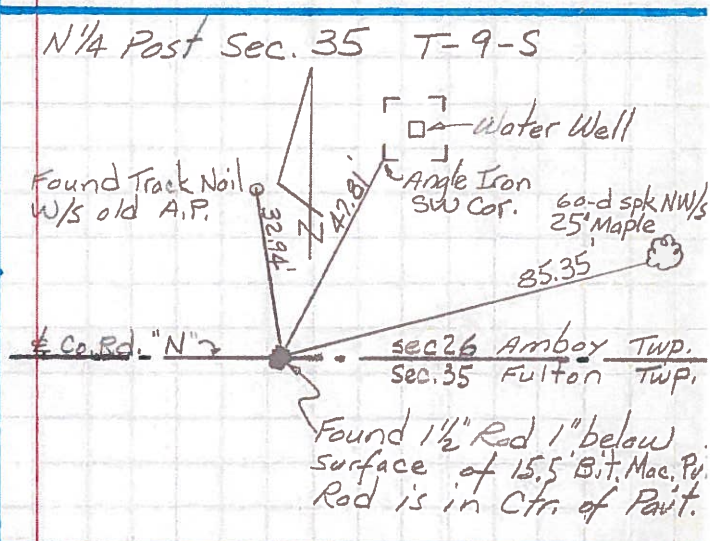 N 1/4 Post Sec. 35 T-9-S
Water Well
Found Track Nail
W/s old A.P.
32.94'
N
42.81'
Angle Iron
SW Cor.
60-d spk NW/s
25" Maple
85.35'
℄ Co. Rd. "N"
Sec 26 Amboy Twp.
Sec. 35 Fulton Twp.
Found 1 1/2" Rod 1" below
surface of 15.5' Bit. Mac. Pv.
Rod is in Ctr. of Pav't.